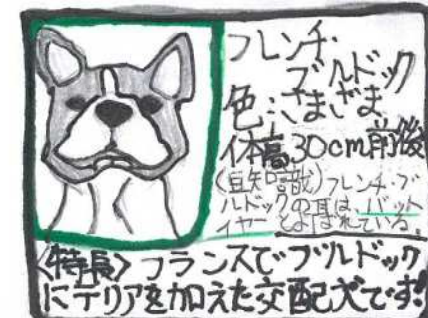 フレンチ・
ブルドック
色:さまざま
体高30cm前後
(豆知識)フレンチ・ブ
ルドックの耳は、バット
イヤーとよばれている。
〈特長〉フランスでブルドック
にテリアを加えた交配犬です!